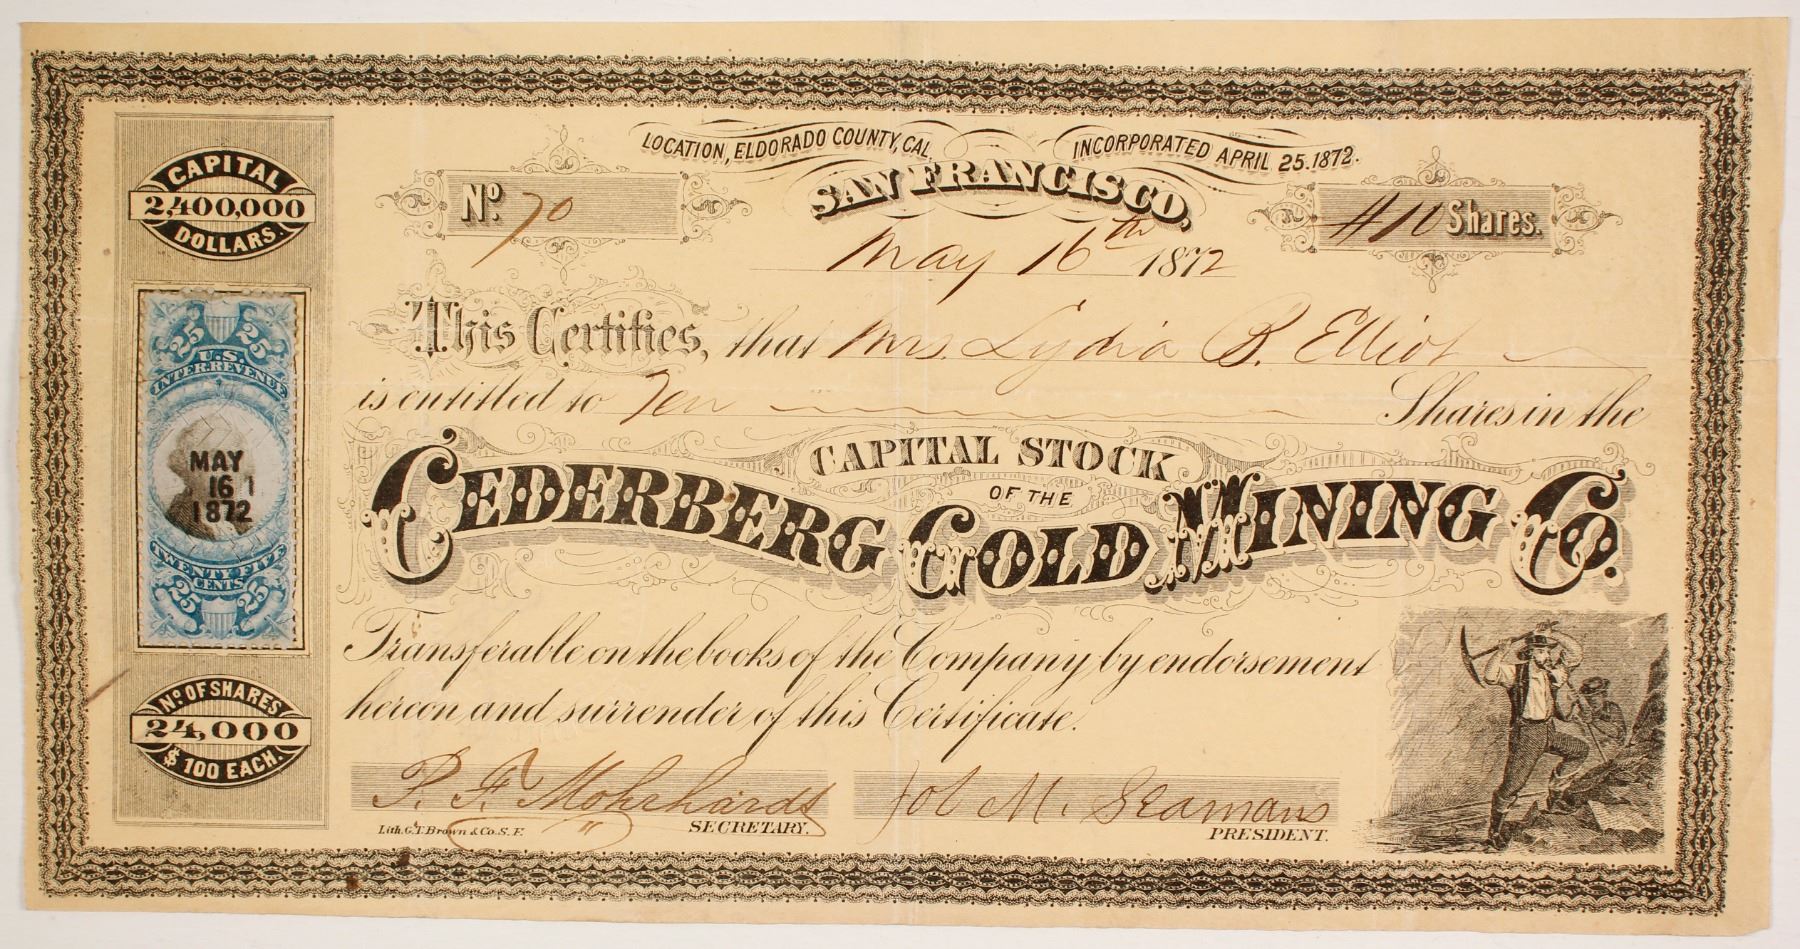 LOCATION, ELDORADO COUNTY, CAL.
INCORPORATED APRIL 25. 1872.
SAN FRANCISCO,
No. 70
#10 Shares.
May 16th 1872
CAPITAL
2,400,000
DOLLARS.
25 25
U.S.
INTER. REVENUE
MAY
16
1872
TWENTY FIVE
CENTS
25 25
No. OF SHARES
24,000
$100 EACH.
This Certifies, that Mrs. Lydia B. Elliot
is entitled to Ten Shares in the
CAPITAL STOCK
OF THE
CEDERBERG GOLD MINING CO.
Transferable on the books of the Company by endorsement
hereon and surrender of this Certificate.
P. F. Mohrhardt
SECRETARY.
M. Seamans
PRESIDENT.
Lith. G.T. Brown & Co. S.F.